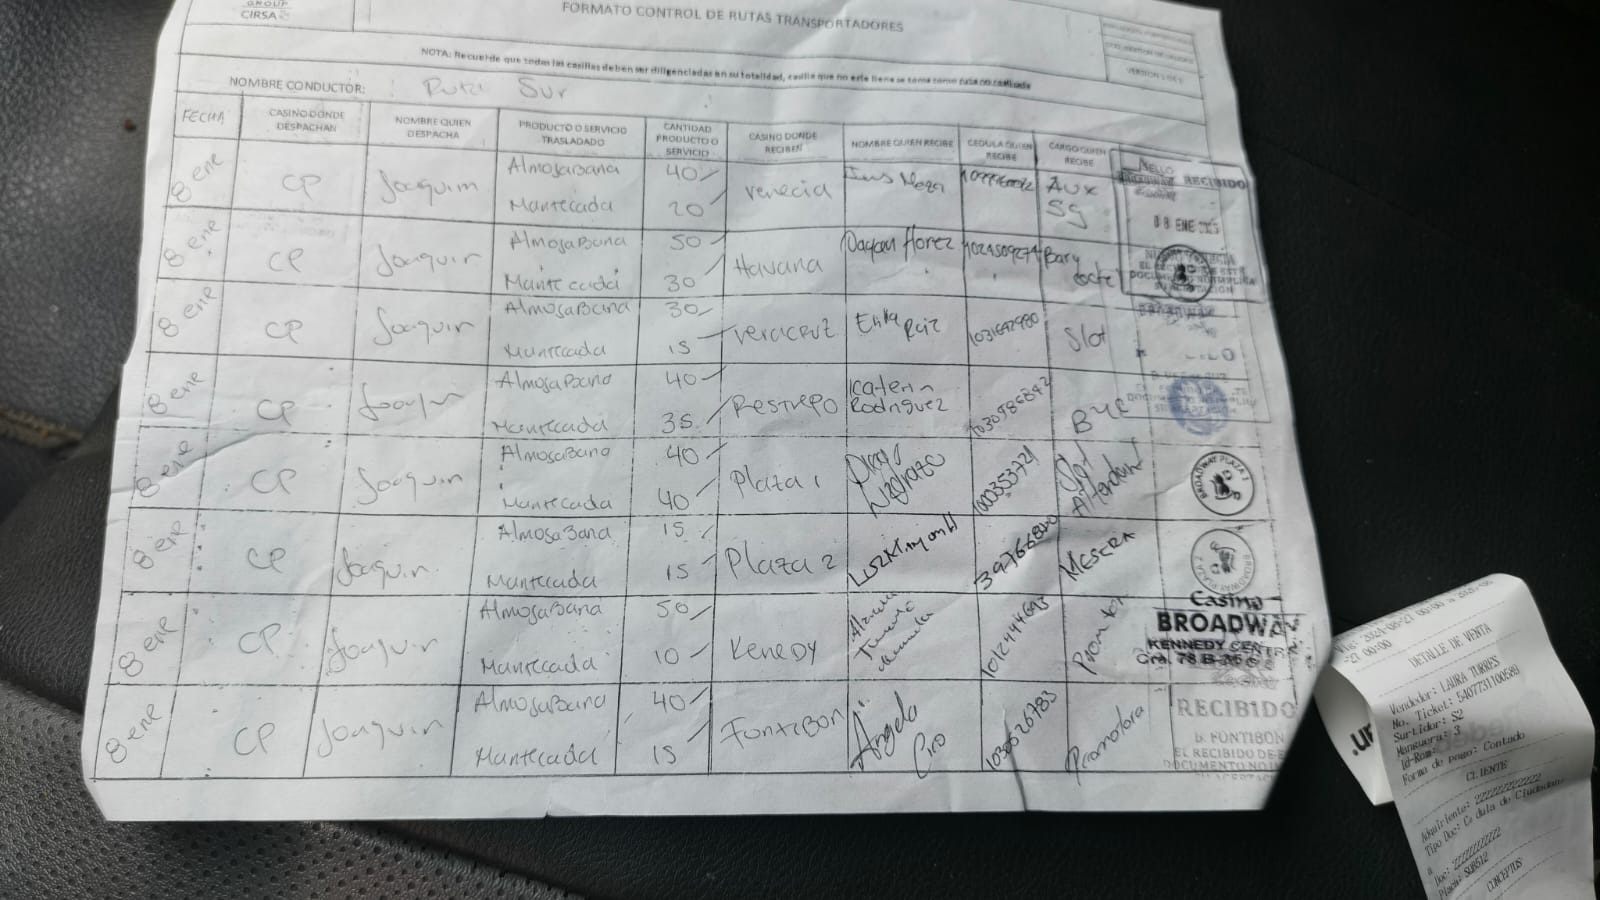 GROUP
CIRSA
FORMATO CONTROL DE RUTAS TRANSPORTADORES
NOTA: Recuerde que todas las casillas deben ser diligenciadas en su totalidad, casilla que no este llena se toma como ruta no realizada
NOMBRE CONDUCTOR: Ruta Sur
FECHA CASINO DONDE DESPACHAN NOMBRE QUIEN DESPACHA PRODUCTO O SERVICIO TRASLADADO CANTIDAD PRODUCTO O SERVICIO CASINO DONDE RECIBEN NOMBRE QUIEN RECIBE CEDULA QUIEN RECIBE CARGO QUIEN RECIBE
8 ene CP Joaquin Almosabana 40 Venecia Aux Sg
Mantecada 20
8 ene CP Joaquin Almosabana 50 Havana Dayan florez 1024509274
Mantecada 30
8 ene CP Joaquin Almosabana 30 Veracruz Erika Ruiz 1031642980 Slot
Mantecada 15
8 ene CP Joaquin Almosabana 40 Restrepo Katerin Rodriguez 1030586842
Mantecada 35
8 ene CP Joaquin Almosabana 40 Plaza 1 1000353721 Slot Attendant
Mantecada 40
8 ene CP Joaquin Almosabana 15 Plaza 2 39766840 Mesera
Mantecada 15
8 ene CP Joaquin Almosabana 50 Kenedy 1012444693 Promotor
Mantecada 10
8 ene CP Joaquin Almosabana 40 Fontibon Angela Ciro 1030526783 Promotora
Mantecada 15
RECIBIDO
08 ENE
BROADWAY PLAZA 1
BROADWAY PLAZA 2
Casino
BROADWAY
KENNEDY CENTRAL
Cra. 78 B
RECIBIDO
B. FONTIBON
EL RECIBIDO DE
DOCUMENTO NO IM
DETALLE DE VENTA
Vendedor: LAURA TORRES
No. Ticket: 5407731100589
Surtidor: S2
Manguera: 3
Id-Rom:
Forma de pago: Contado
CLIENTE
Adquiriente: 222222222222
Tipo Doc: Cedula de Ciudadan
Doc: 222222222222
Placa: SUB512
CONCEPTOS